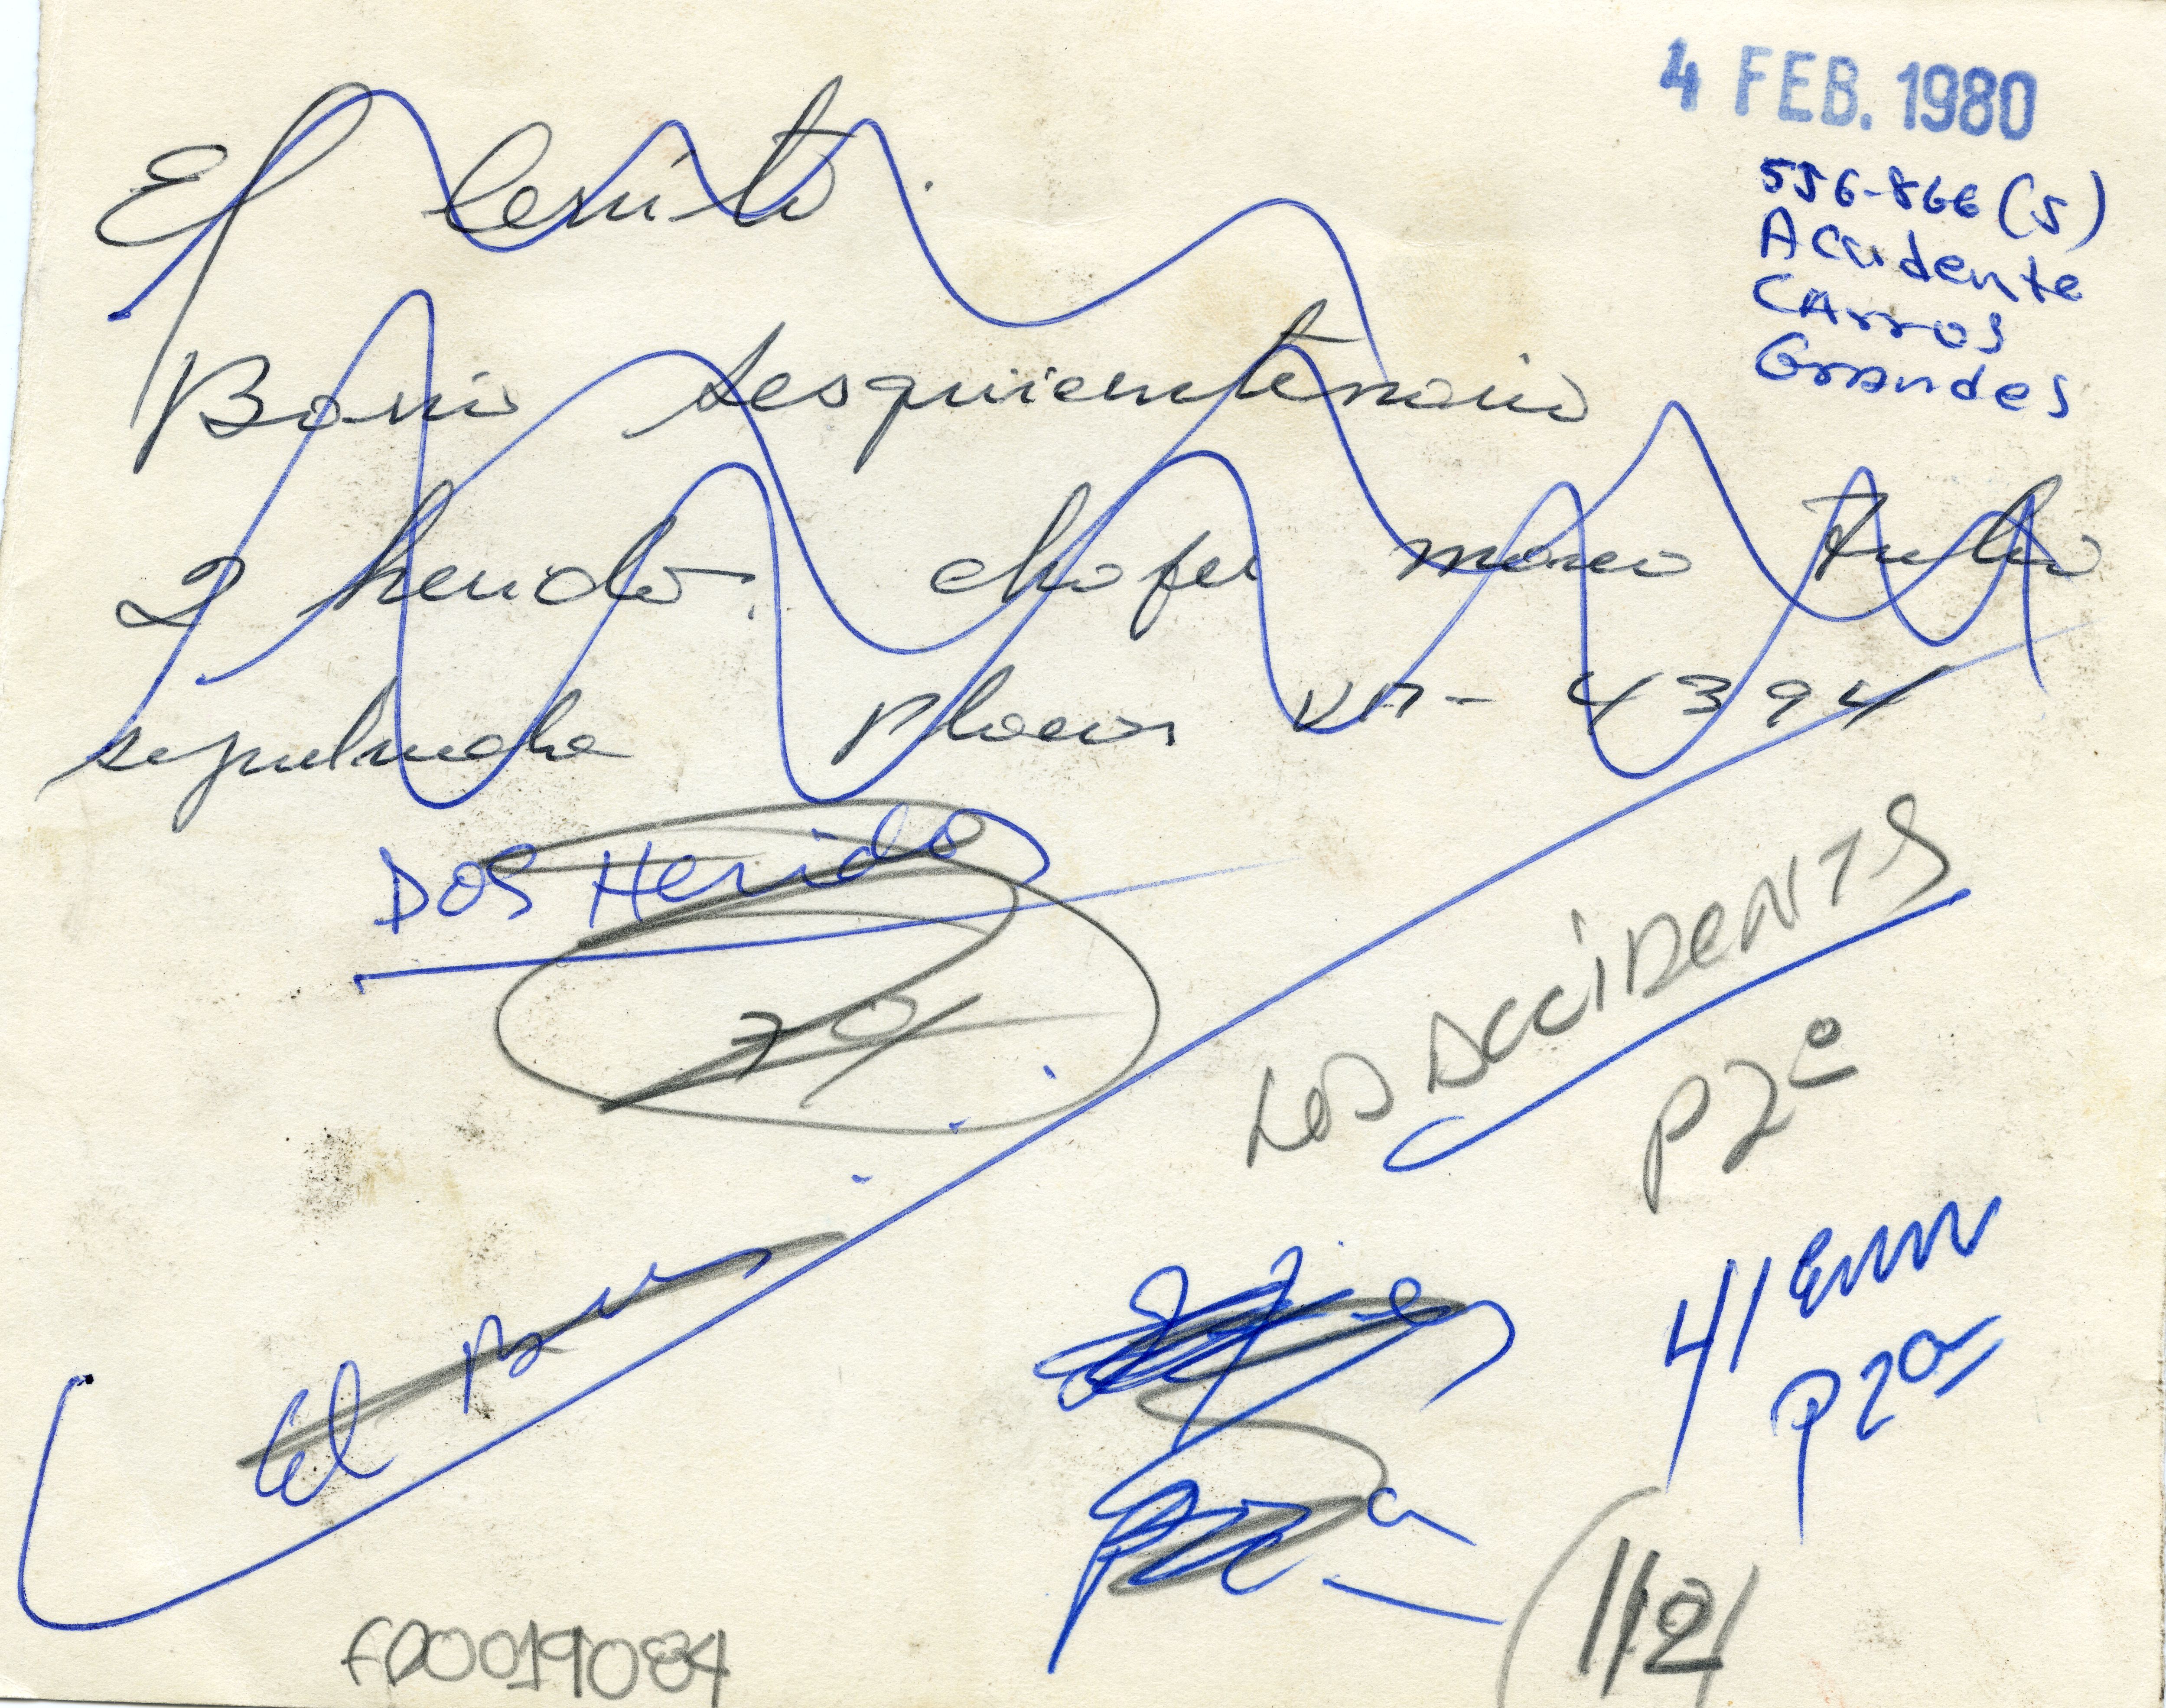 4 FEB. 1980
556-866 (5)
Accidente
CArros
Grandes
El Cerrito
Barrio Sesquicentenario
2 heridos. chofer Marco Tulio
sepulveda Placas VA-4394
DOS Heridos
LOS ACCIDENTES
P 2º
El
41 Emm
P 2a
1/2
FD0019084